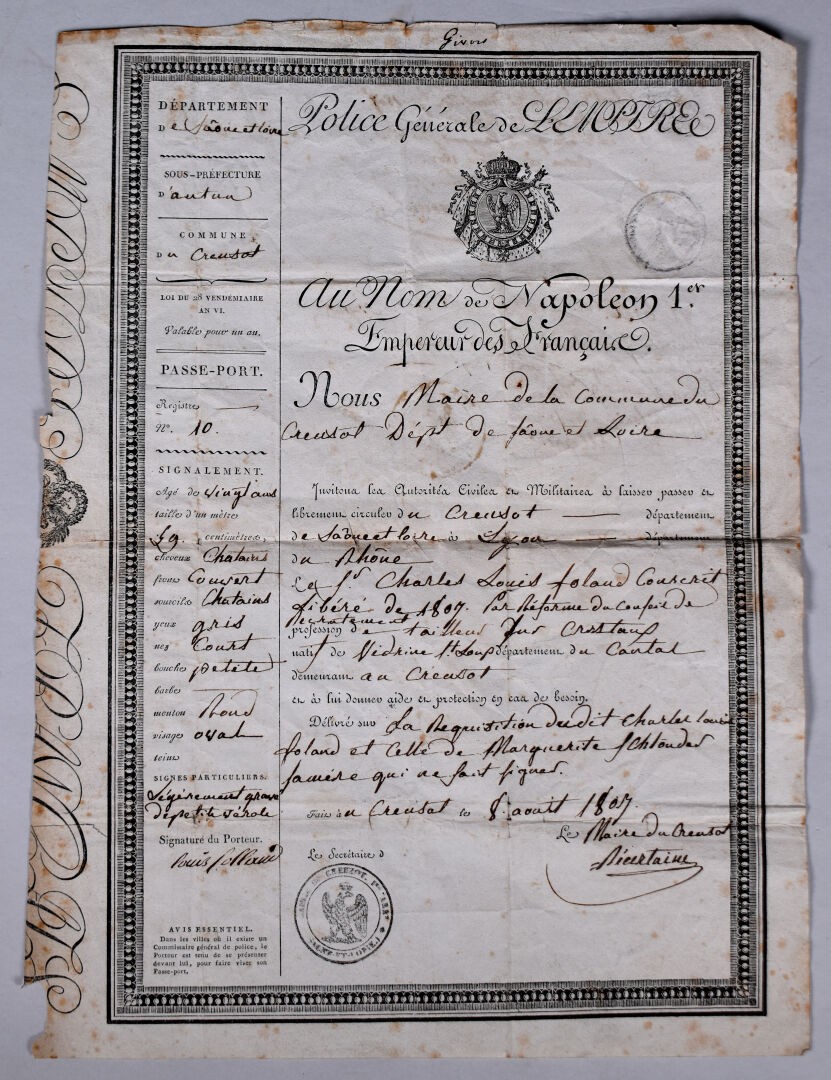 Givors
DÉPARTEMENT
De Saône et Loire
SOUS-PRÉFECTURE
D'autun
COMMUNE
Du Creusot
LOI DU 28 VENDÉMIAIRE
AN VI.
Valable pour un an.
PASSE-PORT.
Registre
N°. 10.
SIGNALEMENT.
Agé de vingt ans
taille d'un mètre
59 centimètres,
cheveux Chatains
front Couvert
sourcils Chatains
yeux gris
nez Court
bouche petete
barbe
menton Rond
visage oval
teint
SIGNES PARTICULIERS.
Légèrement gravé
de petite vérole
Signature du Porteur.
Louis
AVIS ESSENTIEL.
Dans les villes où il existe un
Commissaire général de police, le
Porteur est tenu de se présenter
devant lui, pour faire viser son
Passe-port.
Police Générale de L'EMPIRE
Au Nom de Napoléon 1.er
Empereur des Français.
Nous Maire de la Commune du
Creusot Dépt de Saône et Loire
Invitons les Autorités Civiles et Militaires à laisser passer et
librement circuler du Creusot département
de Saône et Loire à Lyon département
du Rhône
Le Sr. Charles Louis Foland Conscrit
Libéré de 1807. Par Réforme du Conseil de
Recrutement
profession de tailleur Sur Cristaux
natif de Védrine St. Loup département du Cantal
demeurant au Creusot
et à lui donner aide et protection en cas de besoin.
Délivré sur La Requisition dudit Charles Louis
foland et Celle de Marguerite Schlouder
sa mère qui ne sait signer.
Fait à u Creusot le 8. aout 1807.
Le Maire du Creusot
Le Secrétaire d